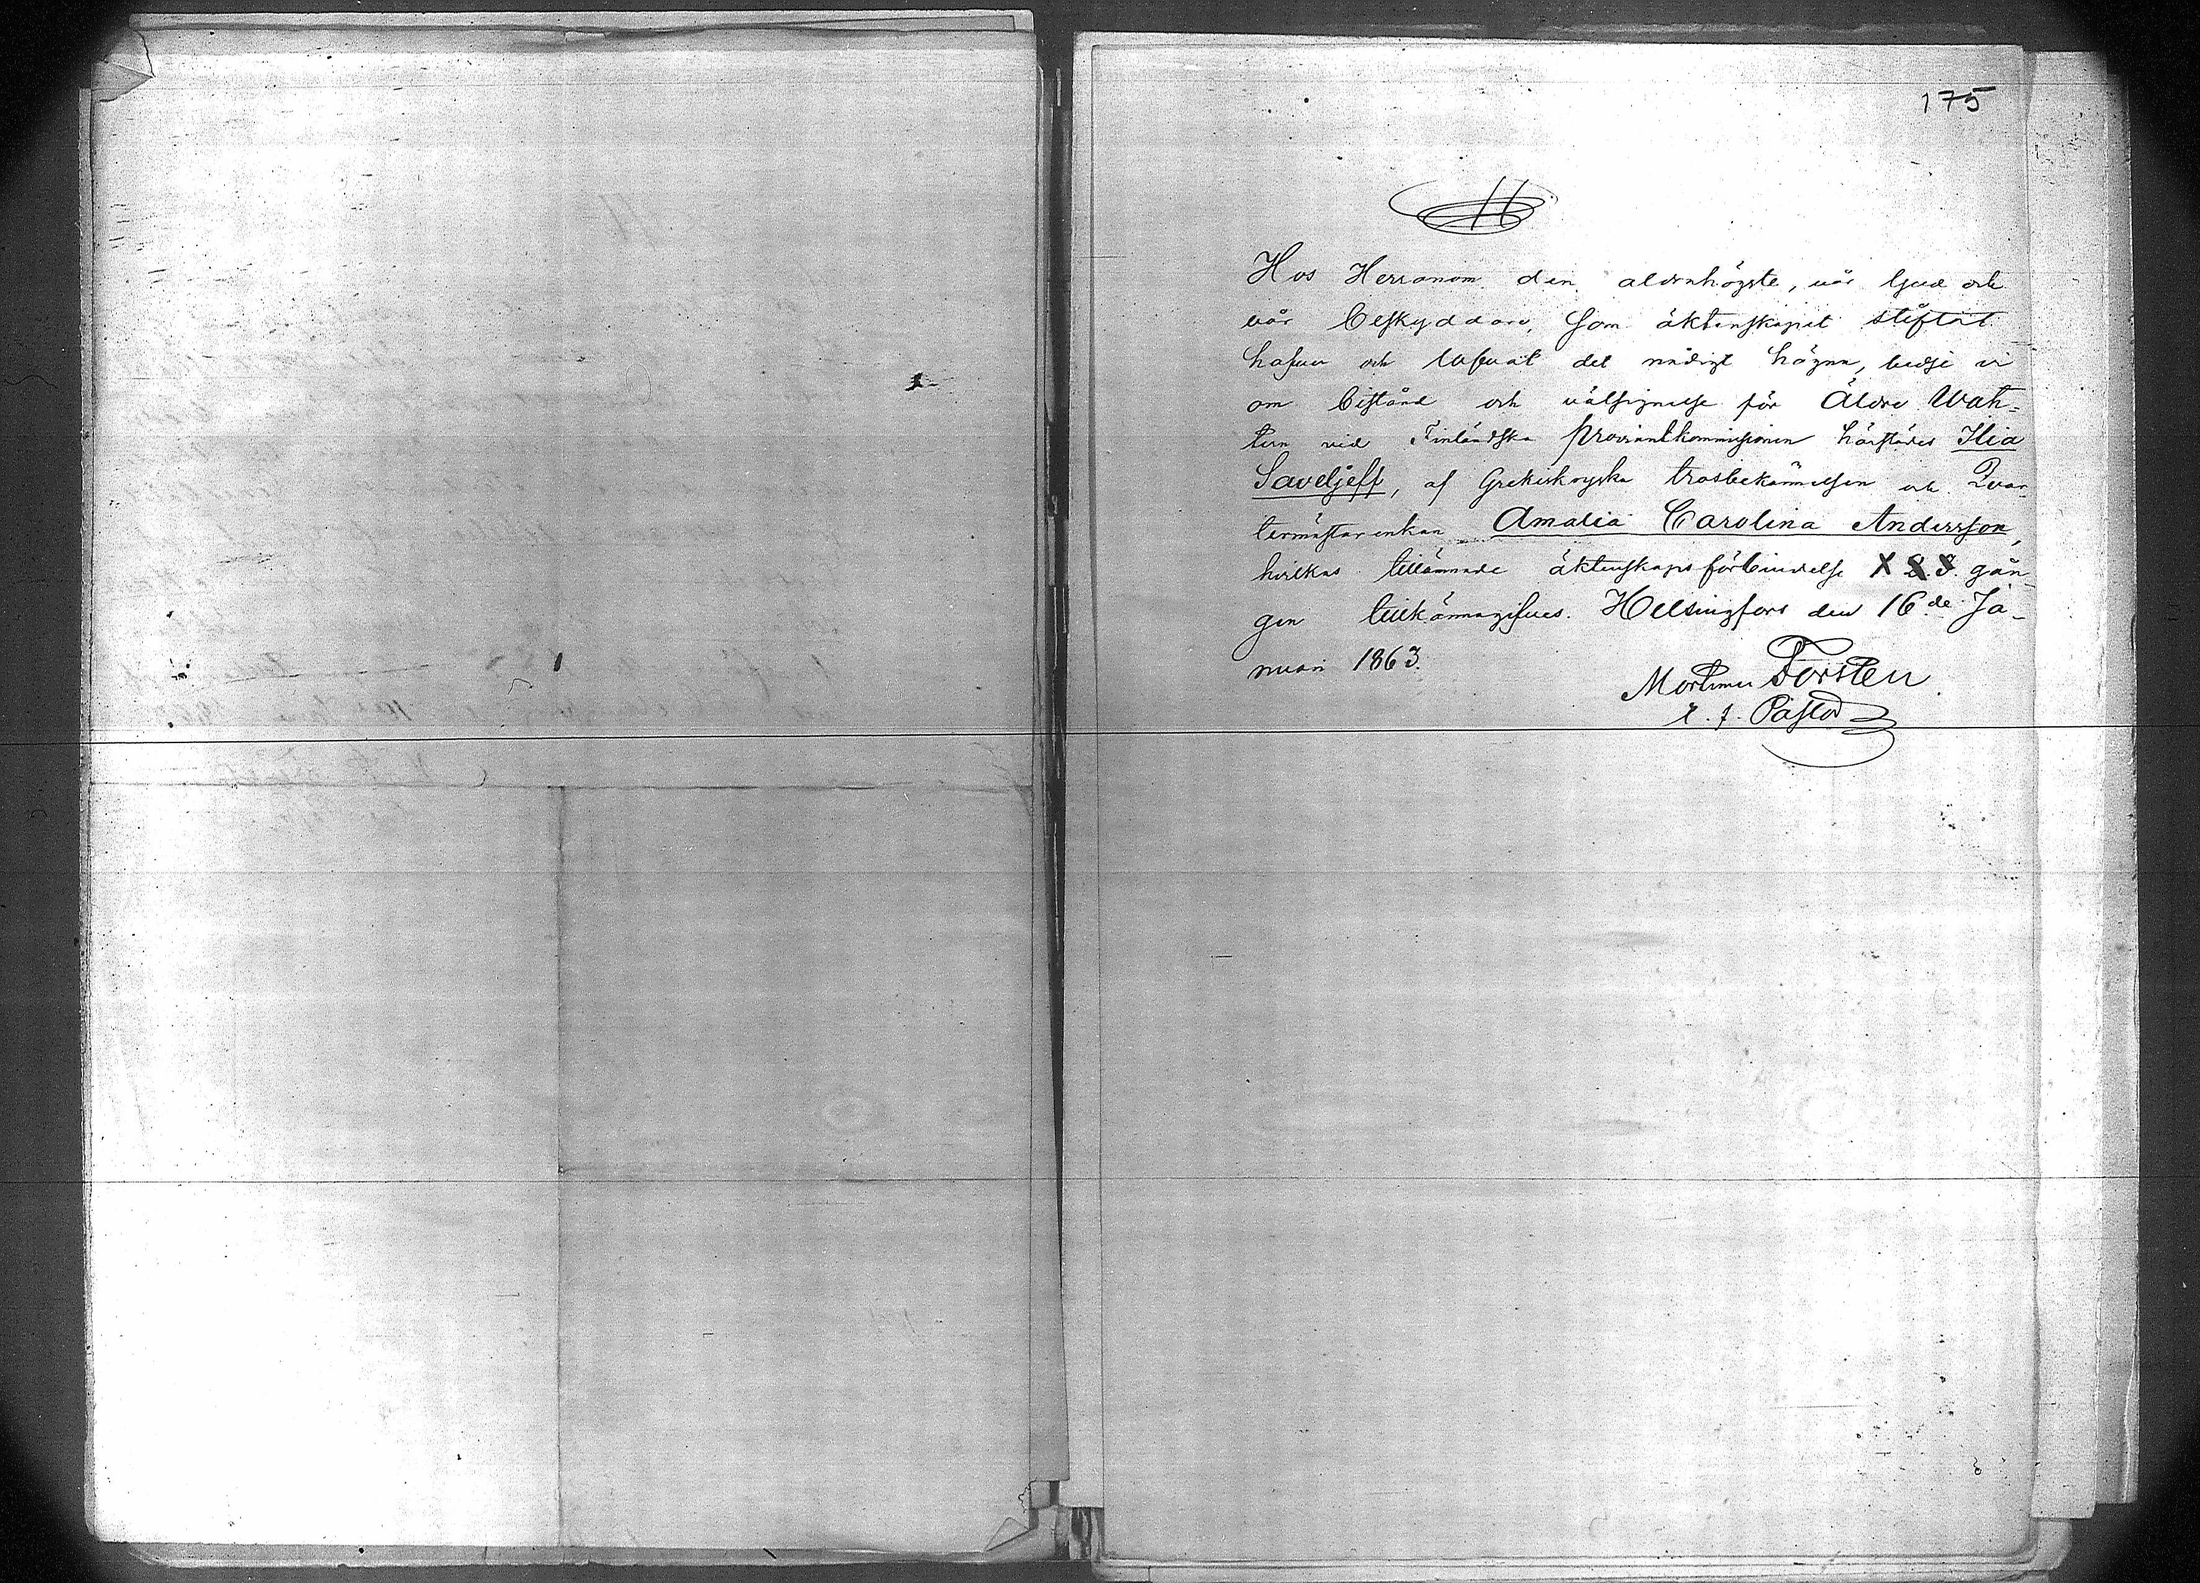 175
H
Hos Herranom den aldrahögste, vår ljud och
vår Beskyddare, som äktenskapet stiftat
hafver och lofvat det nådigt hägna, bedje vi
om bistånd och välsignelse för Äldre Wakt=
ten vid Finländska Proviantkommissionen härstädes Ilia
Saveljeff, af Grekiskryska trosbekännelsen och Qvar-
termästarenkan Amalia Carolina Andersson,
hvilkas tillämnade äktenskapsförbindelse X 2. 3. gån-
gen tillkännagifves. Helsingfors den 16de Ja-
nuari 1863.
Mortimer Forstén
v. f. Pastor